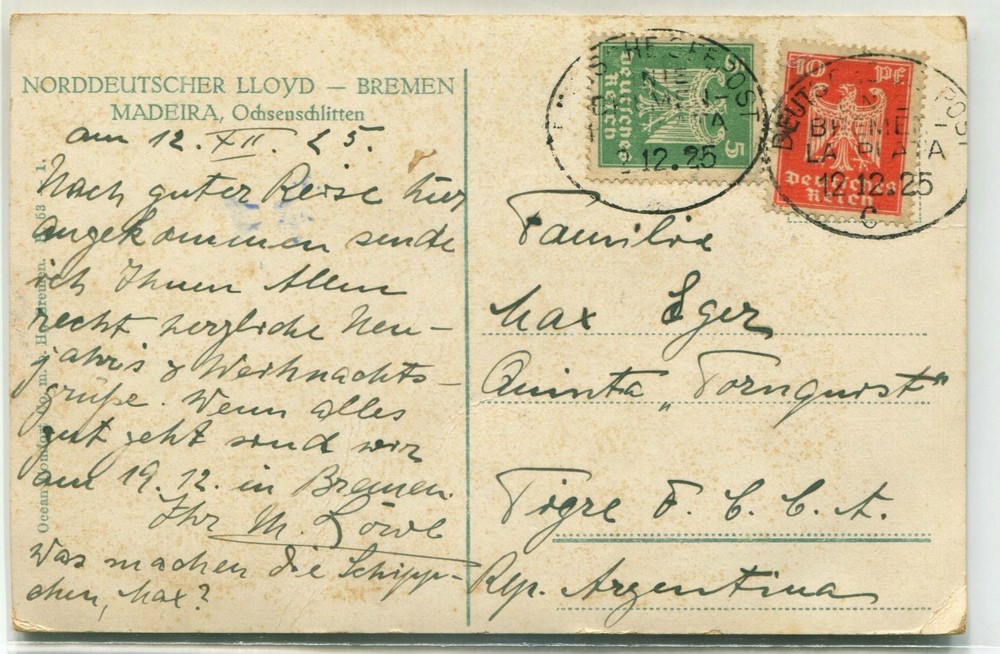 NORDDEUTSCHER LLOYD — BREMEN
MADEIRA, Ochsenschlitten
am 12. XII. 25.
Nach guter Reise hier
angekommen sende
ich Ihnen Allen
recht herzliche Neu-
jahrs & Weihnachts-
grüße. Wenn alles
gut geht sind wir
am 19. 12. in Bremen.
Ihr M. Löwe
Was machen die Schipp-
chen, Max?
Ocean Comfort Co. m. b. H. Bremen.
5
Deutsches
Reich
12.25
10 Pf
Deutsches
Reich
DEUTSCHE SEEPOST
BREMEN-
LA PLATA
12.12.25
C
Familie
Max Eger
Quinta „Tornquist"
Tigre F. C. C. A.
Rep. Argentina